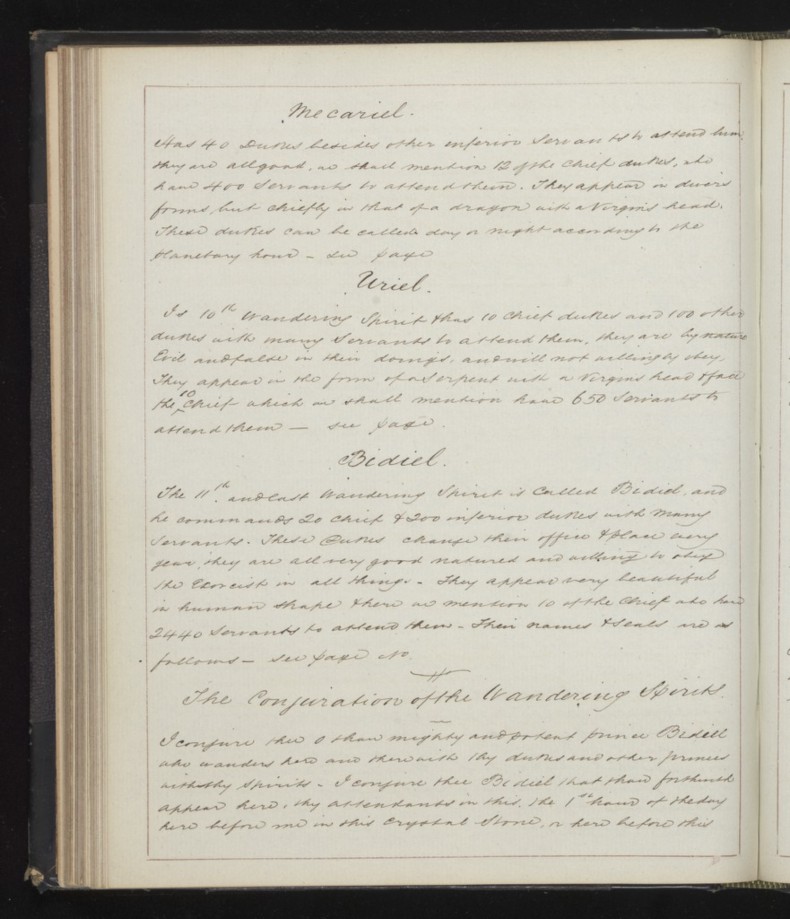 Mecariel.
Has 40 Dukes besides other inferior Servants to attend him,
they are all good, we shall mention 12 of the Chief dukes, who
have 400 Servants to attend them. They appear in divers
forms, but chiefly in that of a dragon with a Virgins head.
These dukes can be called day or night according to the
Planetary hour – see page
Uriel.
Is 10th Wandering Spirit & has 10 Chief dukes and 100 other
dukes with many Servants to attend them, they are by nature
Evil and false in their doings, and will not willingly obey,
They appear in the form of a Serpent with a Virgins head & face
the 10 Chief which we shall mention have 650 Servants to
attend them — see page.
Bidiel.
The 11th and last Wandering Spirit is Called Bidiel, and
he commands 20 Chief & 200 inferior dukes with many
Servants. These Dukes change their office & place every
year, they are all very good natured and willing to obey
the Exorcist in all things – They appear very beautiful
in human shape & here we mention 10 of the Chief who have
2440 Servants to attend them – Their names & Seals are as
follows – see page No.
The Conjuration of the Wandering Spirits.
I conjure thee O thou mighty and potent prince Bidiell
who wanders here and there with thy dukes and other princes
with thy Spirits – I conjure thee Bidiel that thou forthwith
appear here, thy attendants in this, the 1st hour of the day
here before me in this Crystal Stone, or here before this